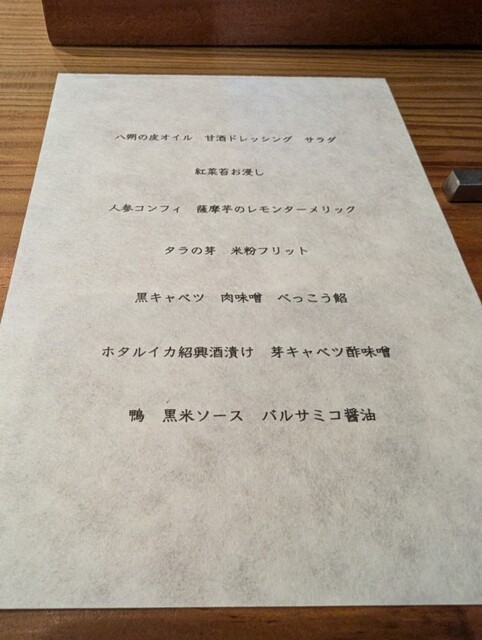 八朔の皮オイル　甘酒ドレッシング　サラダ
紅菜苔お浸し
人参コンフィ　薩摩芋のレモンターメリック
タラの芽　米粉フリット
黒キャベツ　肉味噌　べっこう餡
ホタルイカ紹興酒漬け　芽キャベツ酢味噌
鴨　黒米ソース　バルサミコ醤油